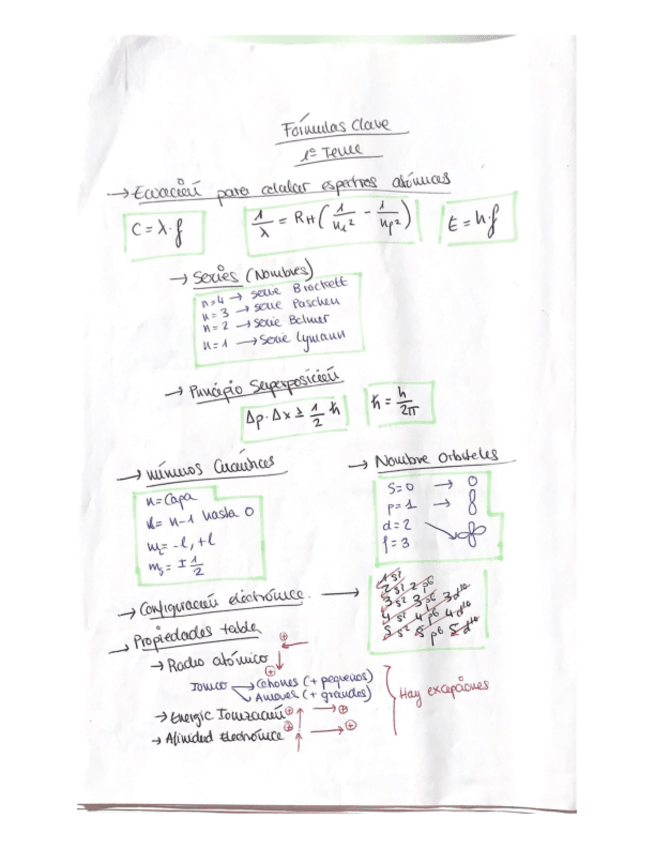 Fórmulas Clave
1º Tema
→ Ecuación para calcular espectros atómicos
C = λ·f
1/λ = RH (1/n₁² - 1/nf²)
E = h·f
→ Series (Nombres)
n=4 → serie Brackett
n=3 → serie Paschen
n=2 → serie Balmer
n=1 → Serie Lymann
→ Principio Superposición
Δp·Δx ≥ 1/2 ħ
ħ = h/2π
→ números Cuánticos
n = Capa
l = n-1 hasta 0
m_l = -l, +l
m_s = ± 1/2
→ Nombre Orbitales
s=0 →
p=1 →
d=2
f=3
→ Configuración electrónica →
1s²
2s² 2p⁶
3s² 3p⁶ 3d¹⁰
4s² 4p⁶ 4d¹⁰
5s² 5p⁶ 5d¹⁰
→ Propiedades tabla
→ Radio atómico
Ionico → Cationes (+ pequeños)
Aniones (+ grandes)
→ Energia Ionización
→ Afinidad Electrónica
Hay excepciones